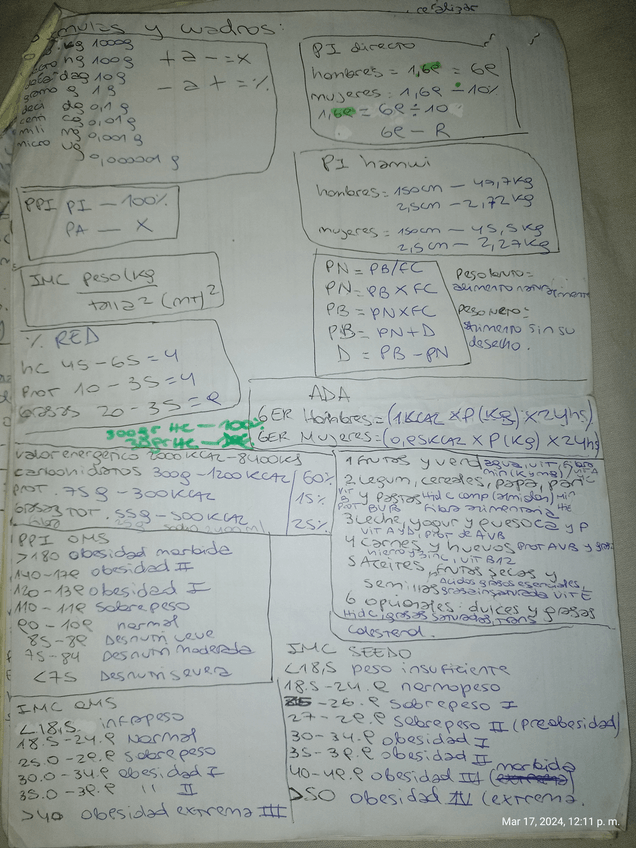 realizar
mulas y cuadros:
kg 1000g
hg 100g
dag 10g
gramo g 1g
deci dg 0,1g
cg 0,01g
mili mg 0,001g
micro
0,000001 g
+ a - = x
- a + = %
PI directo
hombres = 1,69 = 69
mujeres: 1,69 - 10%
1,69 = 69 ÷ 10
69 - R
PI hamwi
hombres = 150cm - 49,7Kg
2,5cm - 2,72Kg
mujeres = 150cm - 45,5Kg
2,5cm - 2,27Kg
PPI PI - 100%
PA - X
IMC Peso(Kg
talla² (mt)²
PN = PB/FC
PN = PB X FC
PB = PN X FC
PB = PN + D
D = PB - PN
Peso bruto =
alimento
Peso neto =
alimento sin su
desecho.
% RED
hc 45-65 = 4
Prot 10-35 = 4
Grasas 20-35 = 9
300gr HC - 100%
30gr HC -
ADA
GER Hombres = (1KCAL X P(Kg) X 24hs)
GER Mujeres = (0,95KCAL X P(Kg) X 24hs
valor energetico 2000KCAL - 8400KJ
carbohidratos 300g - 1200KCAL 60%
Prot. 75g - 300KCAL 15%
Grasas TOT. 55g - 500KCAL 25%
1 Frutas y verd agua, vit, fibra
2 Legum, cereales, papa, pan
y pastas Hid C comp (almidon) Min
Prot BVB Fibra alimentaria
3 Leche, yogur y queso Ca y P
Vit A y D, Prot de AVB
4 Carnes y huevos Prot AVB y
hierro y zinc, vit B12
5 Aceites, frutos secas y
semillas Acidos grasos esenciales,
grasa insaturada vit E
6 opcionales: dulces y grasas
Hid C, grasas saturados, trans
Colesterol.
PPI OMS
>180 obesidad morbida
140-179 obesidad II
120-139 obesidad I
110-119 sobrepeso
90-109 normal
85-89 Desnutri Leve
75-84 Desnutri moderada
<75 Desnutri severa
IMC SEEDO
<18,5 peso insuficiente
18,5-24.9 normopeso
25-26.9 sobrepeso I
27-29.9 sobrepeso II (preobesidad)
30-34.9 obesidad I
35-39.9 obesidad II
40-49.9 obesidad III morbida (extrema)
>50 obesidad IV (extrema.
IMC OMS
<18,5 infrapeso
18.5-24.9 Normal
25.0-29.9 sobrepeso
30.0-34.9 obesidad I
35.0-39.9 " II
>40 obesidad extrema III
Mar 17, 2024, 12:11 p. m.